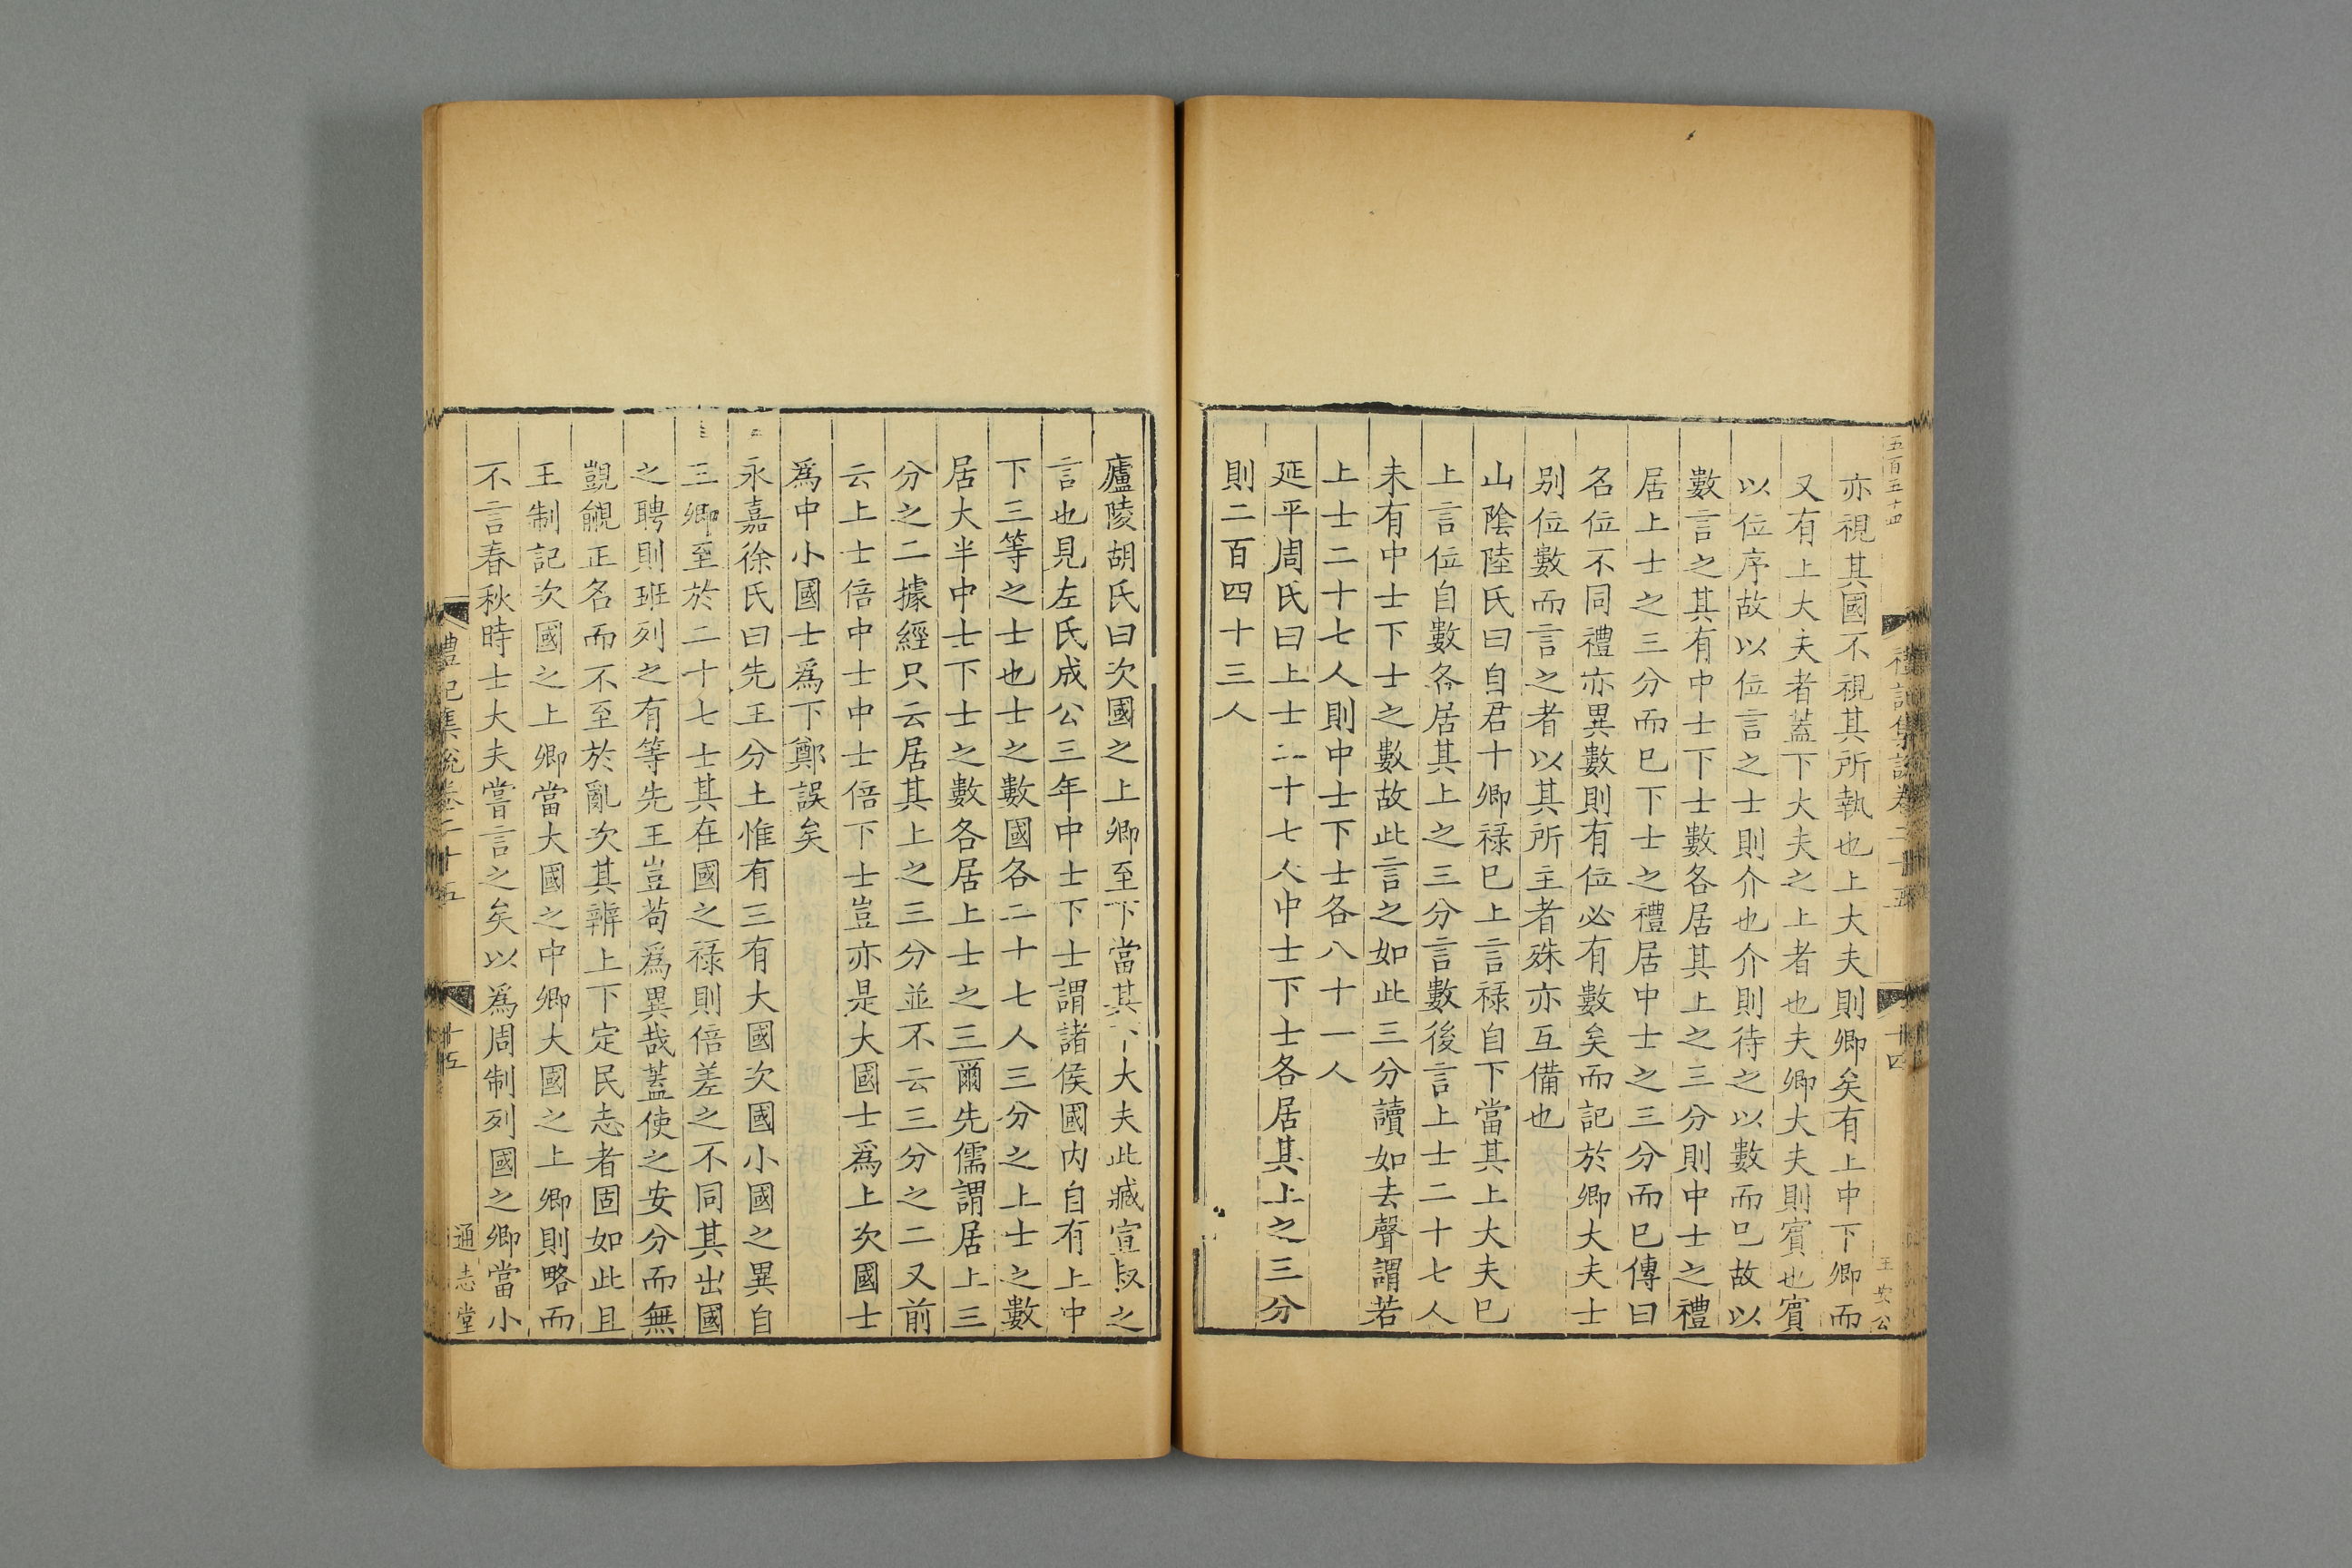 五百五十四
禮記集說卷二十五
十四
王安公
亦視其國不視其所執也上大夫則卿矣有上中下卿而
又有上大夫者蓋下大夫之上者也夫卿大夫則賓也賓
以位序故以位言之士則介也介則待之以數而已故以
數言之其有中士下士數各居其上之三分則中士之禮
居上士之三分而已下士之禮居中士之三分而已傳曰
名位不同禮亦異數則有位必有數矣而記於卿大夫士
別位數而言之者以其所主者殊亦互備也
山陰陸氏曰自君十卿祿已上言祿自下當其上大夫已
上言位自數各居其上之三分言數後言上士二十七人
未有中士下士之數故此言之如此三分讀如去聲謂若
上士二十七人則中士下士各八十一人
延平周氏曰上士二十七人中士下士各居其上之三分
則二百四十三人
廬陵胡氏曰次國之上卿至下當其下大夫此臧宣叔之
言也見左氏成公三年中士下士謂諸侯國内自有上中
下三等之士也士之數國各二十七人三分之上士之數
居大半中士下士之數各居上士之三爾先儒謂居上三
分之二據經只云居其上之三分並不云三分之二又前
云上士倍中士中士倍下士豈亦是大國士爲上次國士
爲中小國士爲下鄭誤矣
永嘉徐氏曰先王分土惟有三有大國次國小國之異自
三卿至於二十七士其在國之祿則倍差之不同其出國
之聘則班列之有等先王豈苟爲異哉蓋使之安分而無
覬覦正名而不至於亂次其辨上下定民志者固如此且
王制記次國之上卿當大國之中卿大國之上卿則略而
不言春秋時士大夫嘗言之矣以爲周制列國之卿當小
禮記集說卷二十五
十五
通志堂